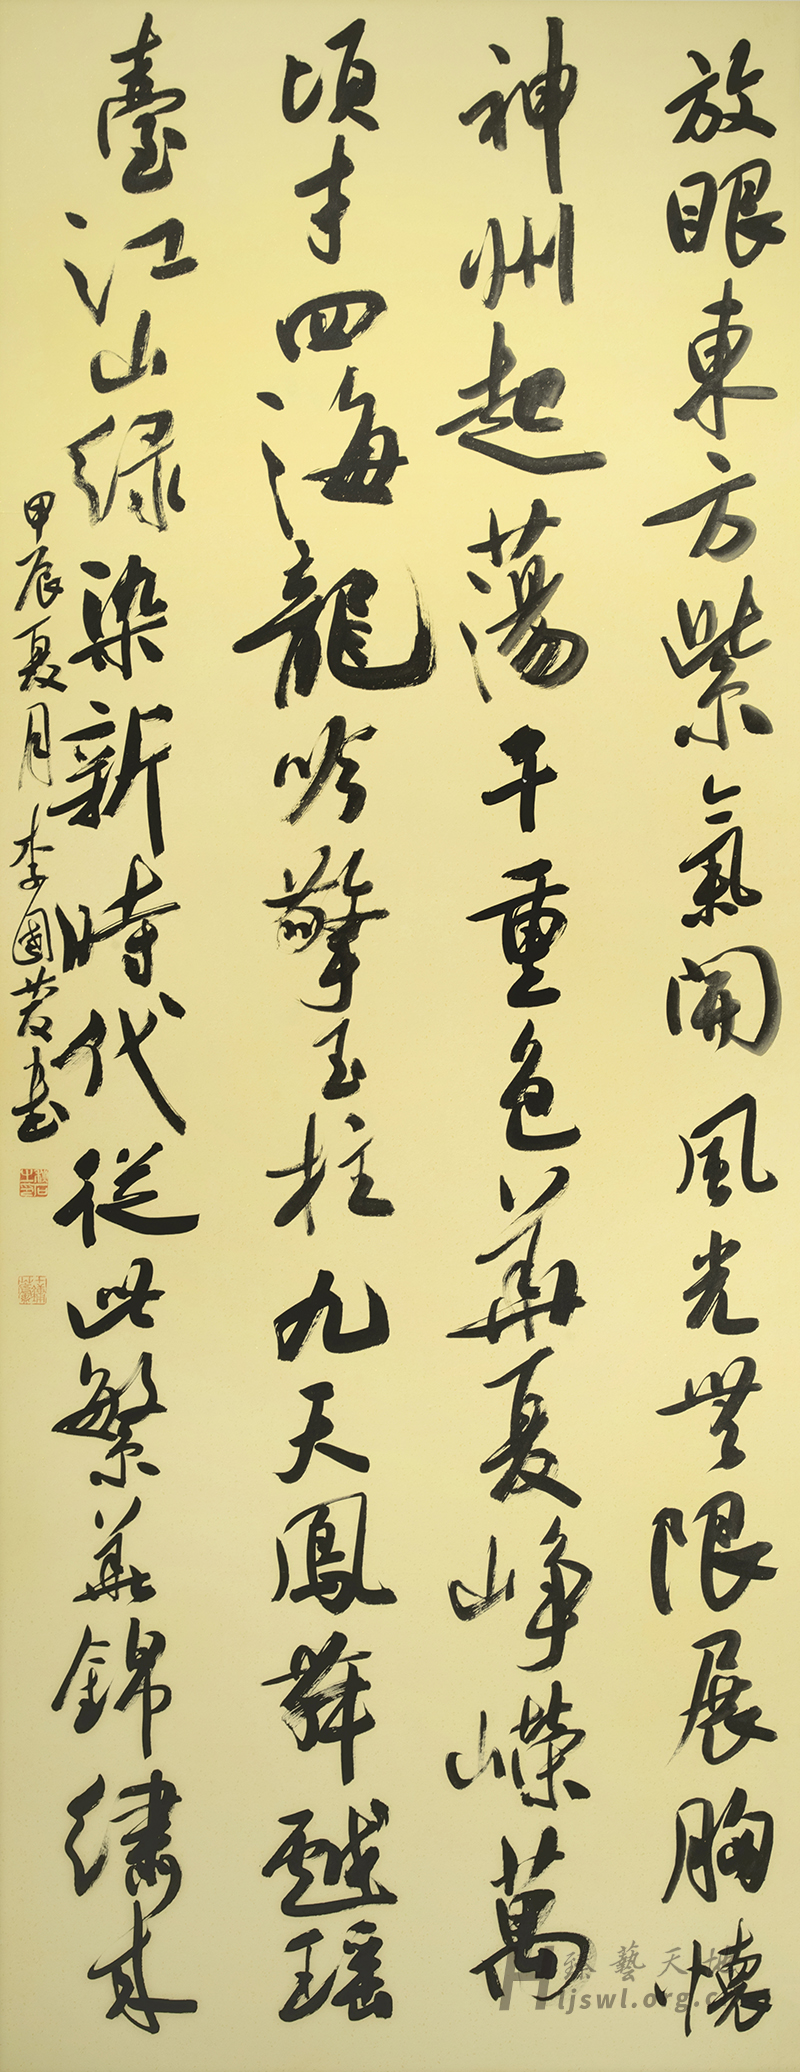 放眼東方紫氣開風光無限展胸懷
神州起蕩千重色華夏崢嶸萬
頃才四海龍吟擎玉柱九天鳳舞戲瑤
臺江山緑染新時代從此繁華錦繡來
甲辰夏月李國發書
臻藝天地
Hljswl.org.cn